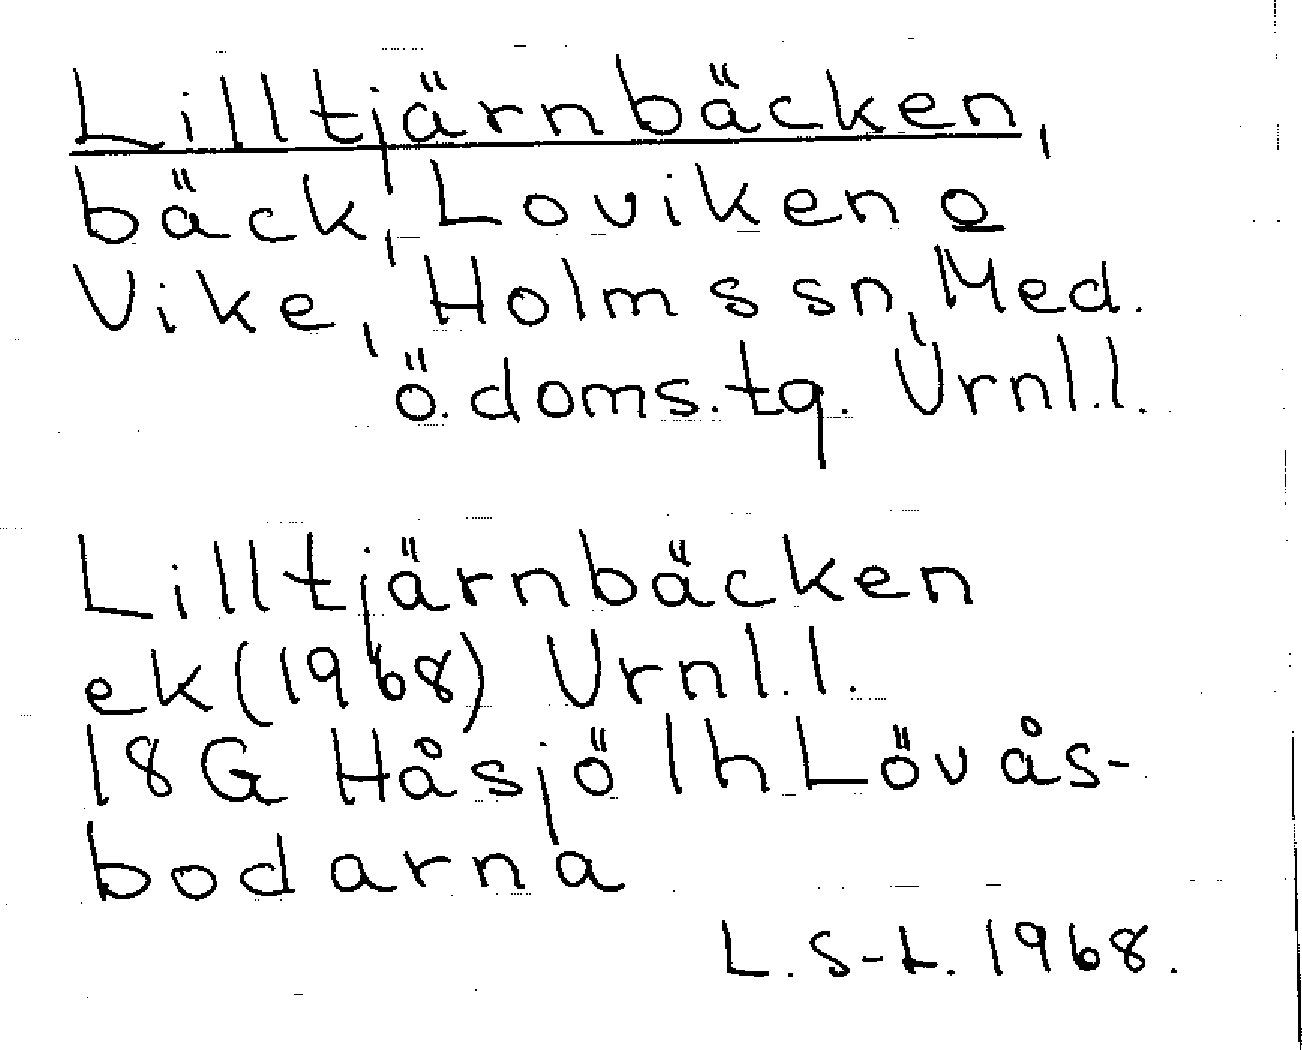 Lilltjärnbäcken,
bäck, Loviken o
Vike, Holms sn, Med.
ö. doms.tg. Urnl.l.
Lilltjärnbäcken
ek (1968) Urnl.l.
18G Håsjö 1h Lövås-
bodarna
L. S-L. 1968.